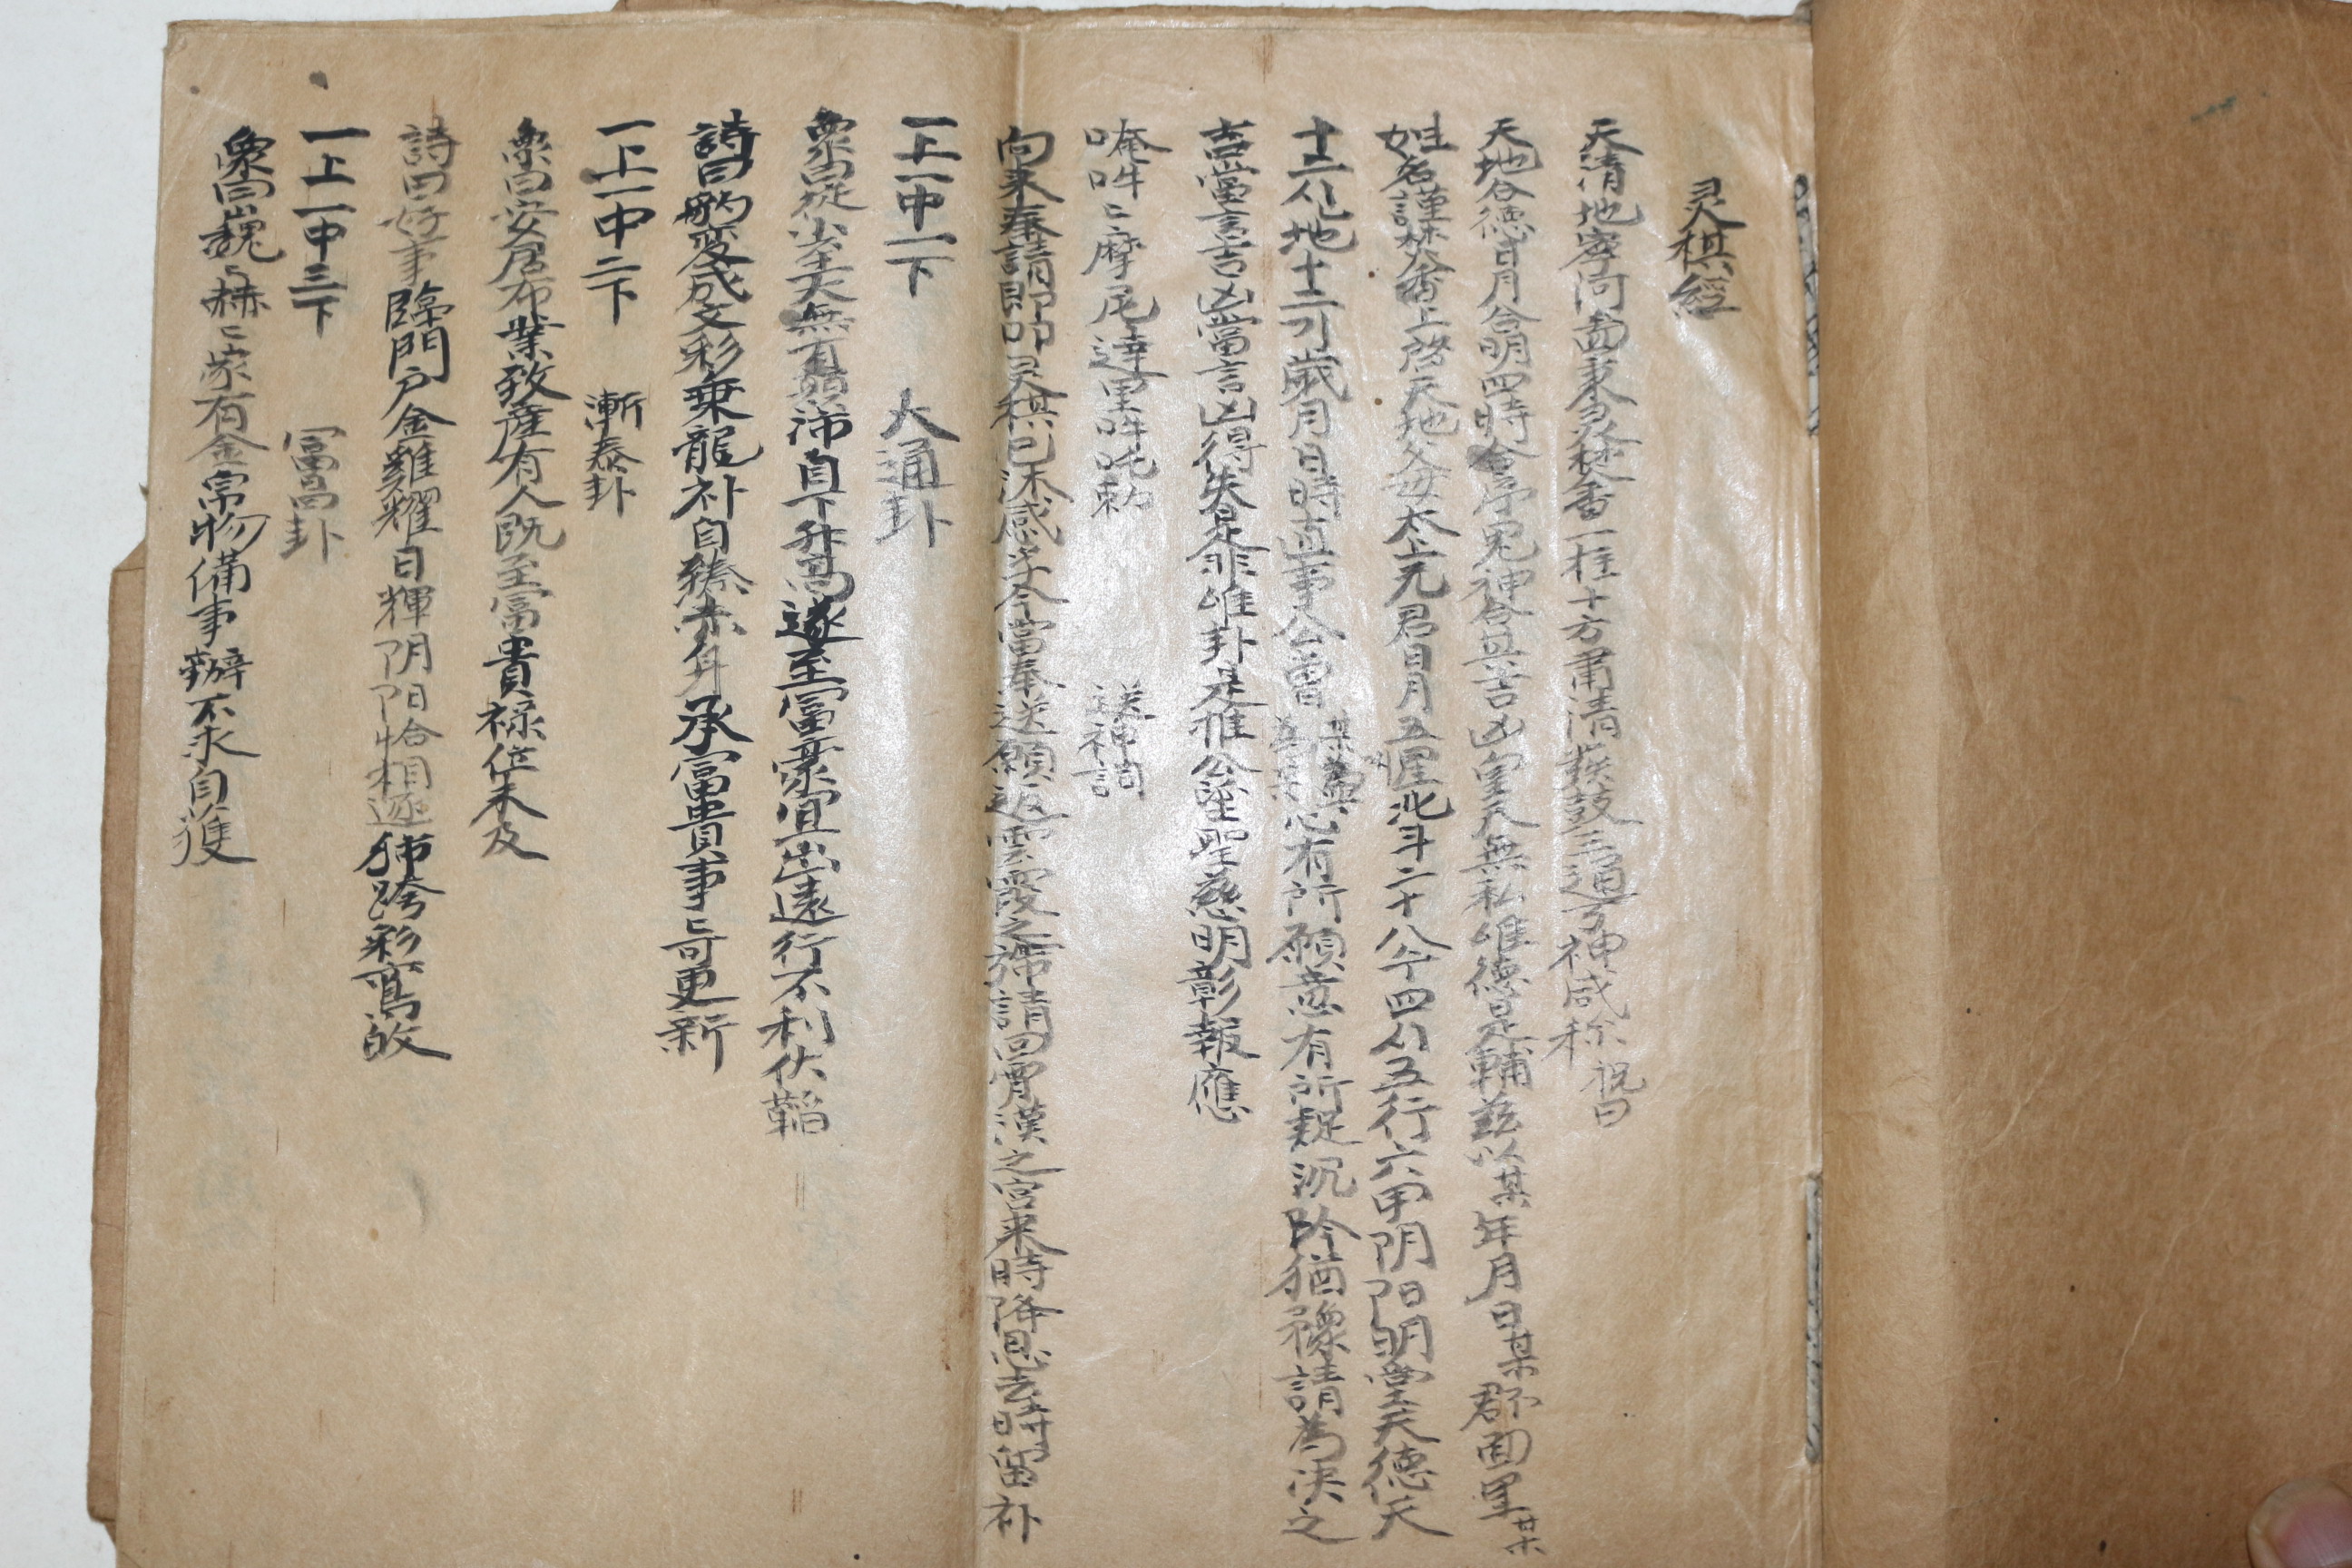 灵棋經
天清地寧河啚秉灵焚香一柱十方肅清 鼓三通万神咸称祝曰
天地合德日月合明四時合序鬼神合其吉凶皇天無私唯德是輔茲以某年月日某郡面里某
姓名謹焚香上啓天地父母太上元君日月五星北斗二十八 四 五行六甲阴阳明堂天德天
十二 地十二 歲月日時直事 曾 某 某心有所願意有所疑沉吟猶豫請為决之
吉當言吉凶當言凶得失是非唯卦是推公望聖慈明彰報應
唵吽〻摩尼達里吽吒勑 送神詞
向来奉請即叩灵棋已沐感孚今當奉送願返雲霞之 請回霄漢之宮来時降恩去時留补
一上一中一下 大通卦
象曰從小至大無有顛沛自下升高遂至富豪宜出遠行不利伏韜
詩曰豹変成文彩乗龍补自臻 身承富貴事〻可更新
一上一中二下 漸泰卦
象曰安居布業致産有人既至富貴禄位未及
詩曰好事臨門戸金雞耀日輝阴阳恰相逐 跨彩鸞
一上一中三下 富昌卦
象曰巍〻赫〻家有金帛物備事辦不求自獲